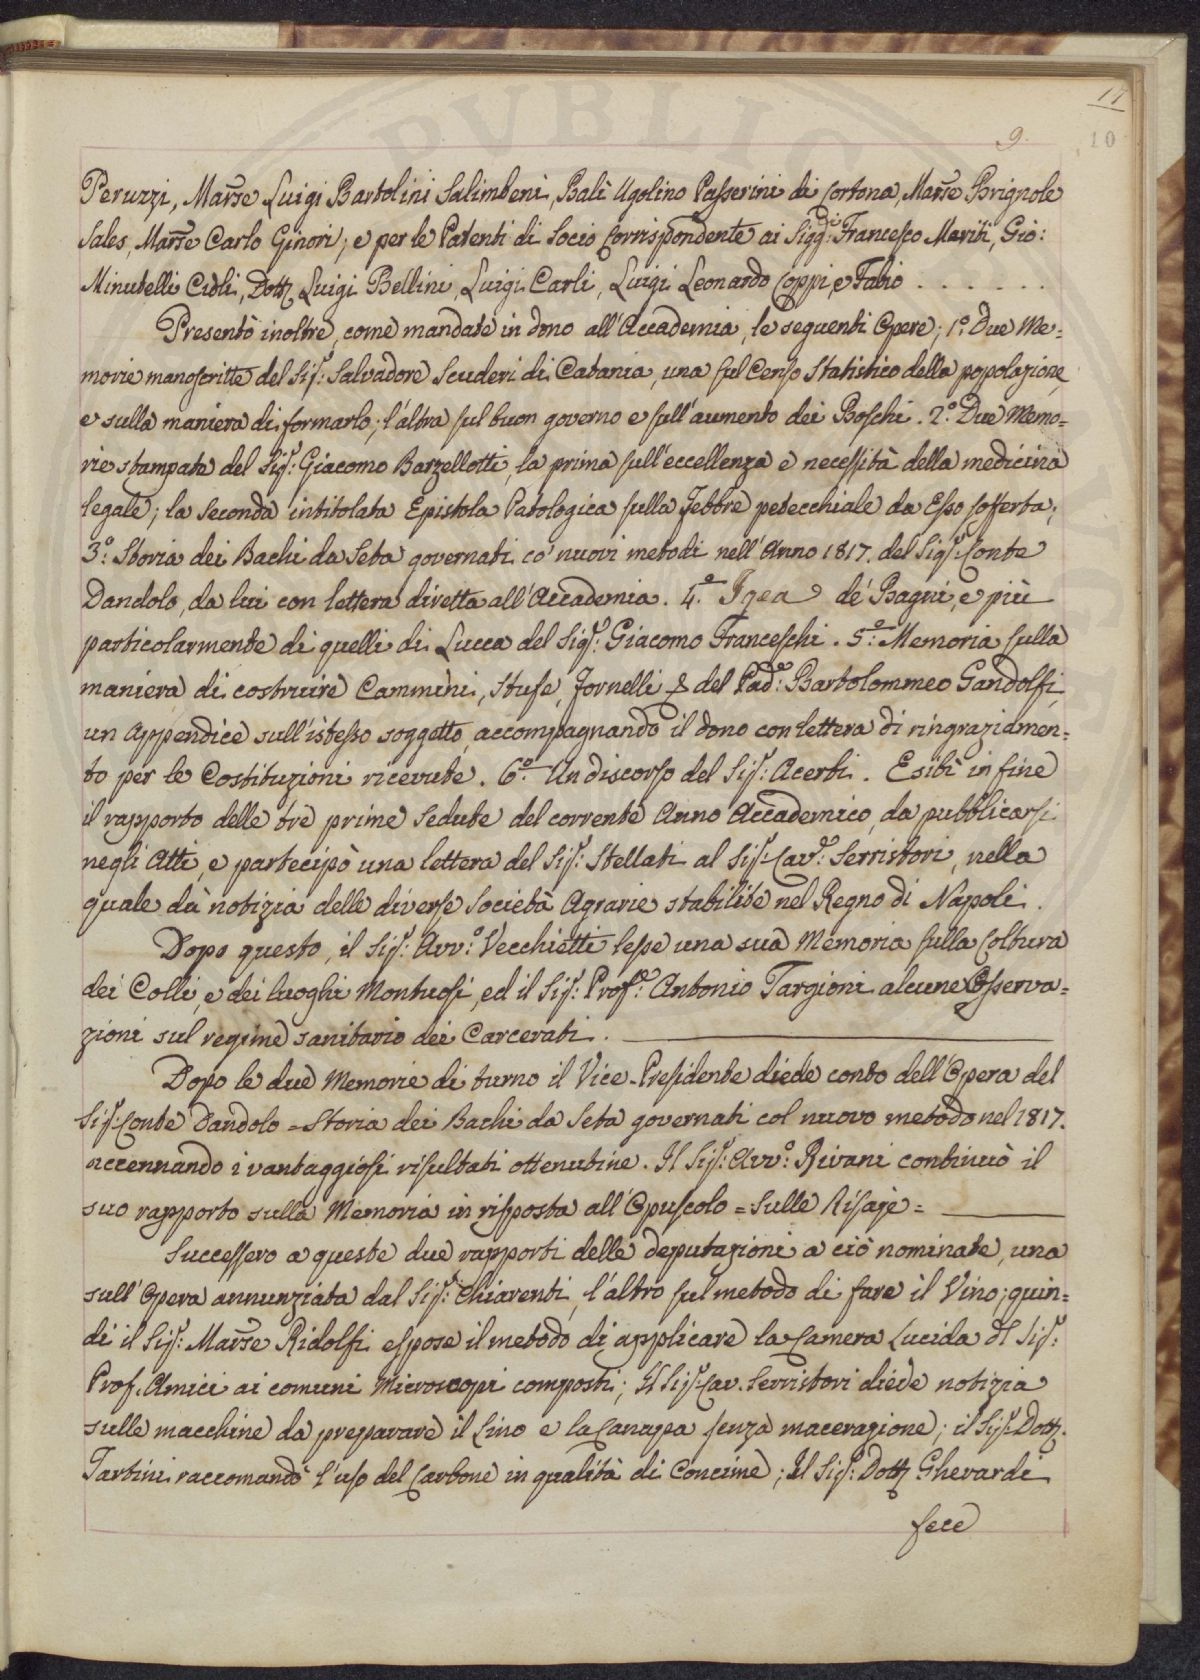 PVBLIC
17
9.
10
Peruzzi, Marse Luigi Bartolini Salimbeni, Balì Ugolino Passerini di Cortona, Marse Brignole
Sales, Marse Carlo Ginori; e per le Patenti di Socio Corrispondente ai Sigg:ri Francesco Mariti, Gio:
Minutelli Cioli, Dott. Luigi Bellini, Luigi Carli, Luigi Leonardo Coppi, e Fabio . . . . . . .
Presentò inoltre, come mandate in dono all'Accademia, le seguenti Opere; 1.º Due Me=
morie manoscritte del Sig.r: Salvadore Scuderi di Catania, una sul Censo Statistico della popolazione,
e sulla maniera di formarlo; l'altra sul buon governo e sull'aumento dei Boschi. 2.º Due Memo=
rie stampate del Sig.r: Giacomo Barzellotti, la prima sull'eccellenza e necessità della medicina
legale; la seconda intitolata Epistola Patologica sulla Febbre petecchiale da Esso sofferta;
3.º Storia dei Bachi da Seta governati co' nuovi metodi nell'Anno 1817. del Sig.r: Conte
Dandolo, da lui con lettera diretta all'Accademia. 4.º Igea de' Bagni, e più
particolarmente di quelli di Lucca del Sig.r: Giacomo Franceschi. 5.º Memoria sulla
maniera di costruire Cammini, Stufe, Fornelli & del Pad.e: Bartolommeo Gandolfi,
un Appendice sull'istesso soggetto, accompagnando il dono con lettera di ringraziamen=
to per le Costituzioni ricevute. 6.º Un discorso del Sig.r: Acerbi. Esibì in fine
il rapporto delle tre prime Sedute del corrente Anno Accademico, da pubblicarsi
negli Atti, e partecipò una lettera del Sig.r: Stellati al Sig.r: Cav.e: Serristori, nella
quale dà notizia delle diverse Società Agrarie stabilite nel Regno di Napoli.
Dopo questo, il Sig.r: Avv.º Vecchietti lesse una sua Memoria sulla Coltura
dei Colli, e dei luoghi Montuosi, ed il Sig.r: Prof.e: Antonio Targioni alcune Osserva=
zioni sul regime sanitario dei Carcerati.
Dopo le due Memorie di turno il Vice-Presidente diede conto dell'Opera del
Sig.r: Conte Dandolo = Storia dei Bachi da Seta governati col nuovo metodo nel 1817.
accennando i vantaggiosi risultati ottenutine. Il Sig.r: Avv.º: Rivani continuò il
suo rapporto sulla Memoria in risposta all'Opuscolo = Sulle Risaje =
Successero a queste due rapporti delle deputazioni a ciò nominate, una
sull'Opera annunziata dal Sig.r: Chiarenti, l'altro sul metodo di fare il Vino; quin=
di il Sig.r: Marse Ridolfi espose il metodo di applicare la Camera Lucida del Sig.r:
Prof. Amici ai comuni Microscopi composti; Il Sig.r Cav. Serristori diede notizia
sulle macchine da preparare il Lino e la Canapa senza macerazione; il Sig.r: Dott.
Tartini raccomandò l'uso del Carbone in qualità di Concime; Il Sig.r: Dott. Gherardi
fece